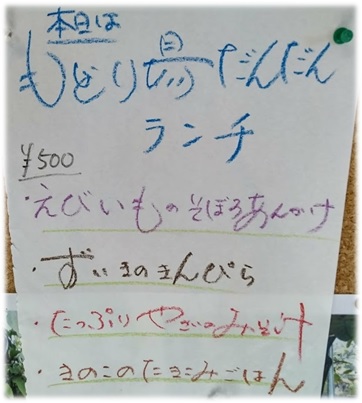 本日は
もどり場だんだん
ランチ
¥500
・えびいものそぼろあんかけ
・ずいきのきんぴら
・たっぷりやさいのみそ汁
・きのこのたきこみごはん